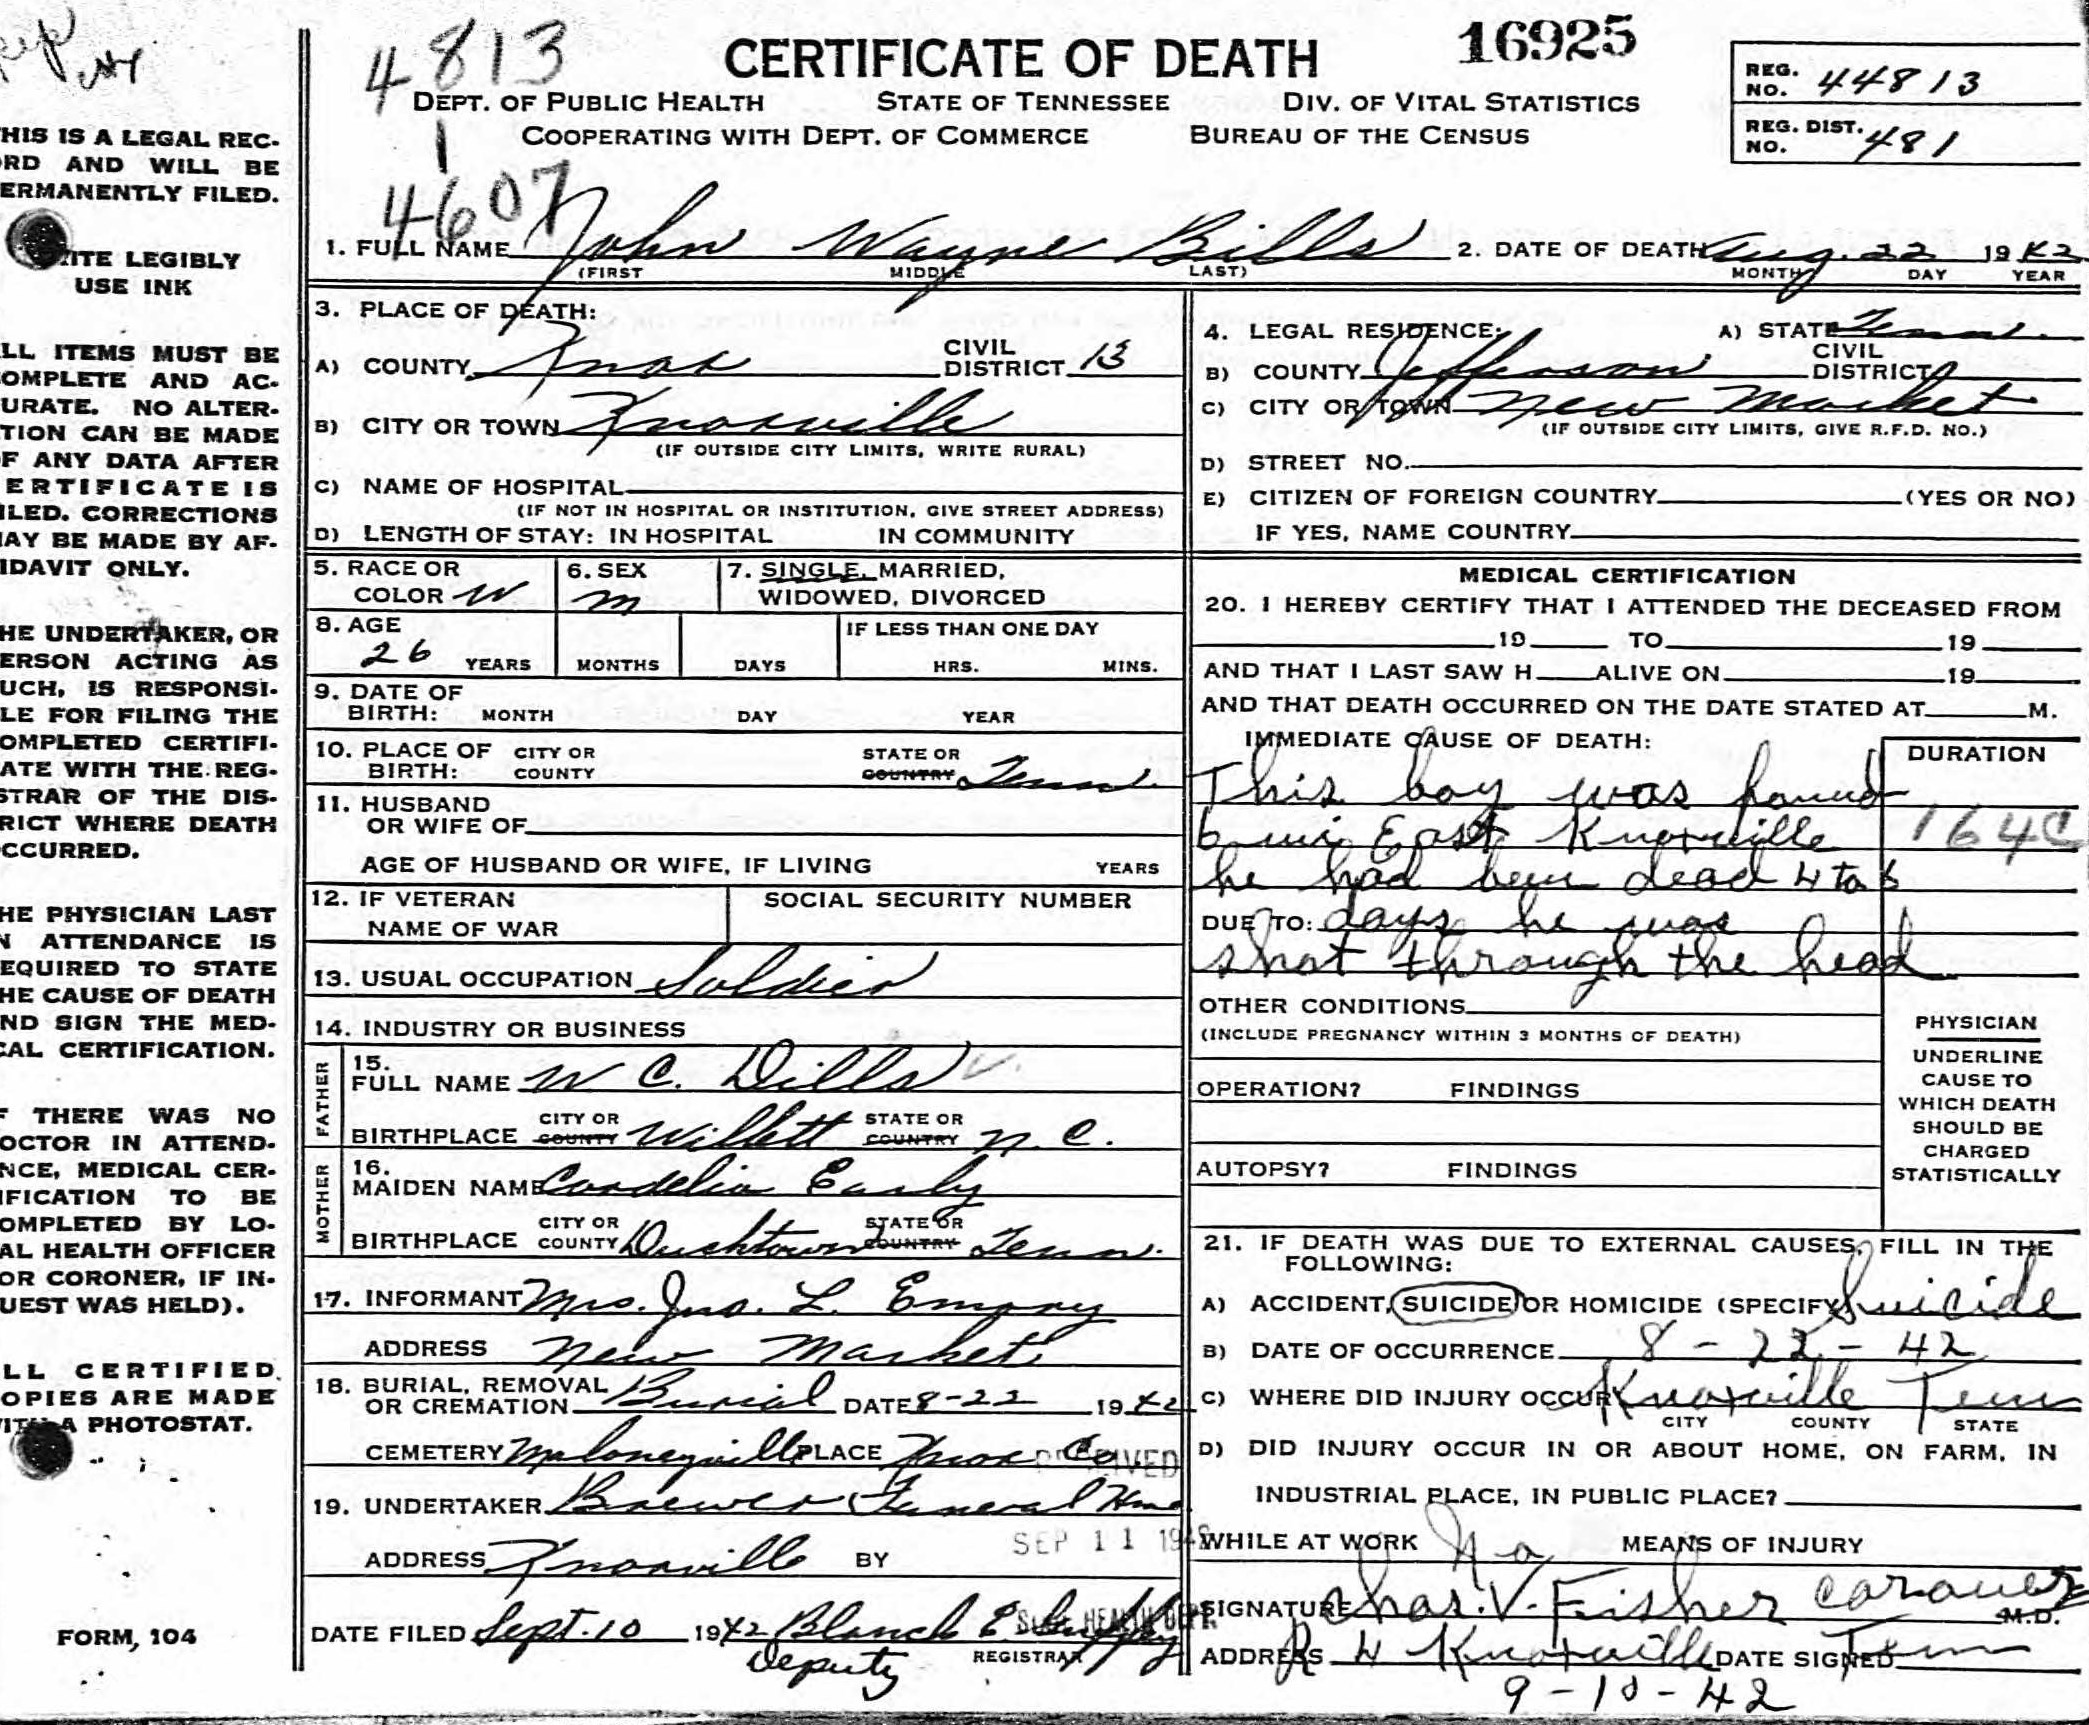 4813
1
4607
CERTIFICATE OF DEATH
16925
DEPT. OF PUBLIC HEALTH STATE OF TENNESSEE DIV. OF VITAL STATISTICS
COOPERATING WITH DEPT. OF COMMERCE BUREAU OF THE CENSUS
REG. NO. 44813
REG. DIST. NO. 481
HIS IS A LEGAL REC-
RD AND WILL BE
ERMANENTLY FILED.
ITE LEGIBLY
USE INK
LL ITEMS MUST BE
OMPLETE AND AC-
URATE. NO ALTER-
TION CAN BE MADE
F ANY DATA AFTER
ERTIFICATE IS
ILED. CORRECTIONS
AY BE MADE BY AF-
IDAVIT ONLY.
HE UNDERTAKER, OR
ERSON ACTING AS
UCH, IS RESPONSI-
LE FOR FILING THE
OMPLETED CERTIFI-
ATE WITH THE REG-
STRAR OF THE DIS-
RICT WHERE DEATH
CCURRED.
HE PHYSICIAN LAST
N ATTENDANCE IS
EQUIRED TO STATE
HE CAUSE OF DEATH
ND SIGN THE MED-
CAL CERTIFICATION.
F THERE WAS NO
OCTOR IN ATTEND-
NCE, MEDICAL CER-
IFICATION TO BE
OMPLETED BY LO-
AL HEALTH OFFICER
OR CORONER, IF IN-
UEST WAS HELD).
LL CERTIFIED
OPIES ARE MADE
ITH A PHOTOSTAT.
FORM, 104
1. FULL NAME John Wayne Bills 2. DATE OF DEATH Aug. 22 1942
(FIRST MIDDLE LAST) MONTH DAY YEAR
3. PLACE OF DEATH:
A) COUNTY Knox CIVIL DISTRICT 13
B) CITY OR TOWN Knoxville
(IF OUTSIDE CITY LIMITS, WRITE RURAL)
C) NAME OF HOSPITAL
(IF NOT IN HOSPITAL OR INSTITUTION, GIVE STREET ADDRESS)
D) LENGTH OF STAY: IN HOSPITAL IN COMMUNITY
4. LEGAL RESIDENCE: A) STATE Tenn.
B) COUNTY Jefferson CIVIL DISTRICT
C) CITY OR TOWN New Market
(IF OUTSIDE CITY LIMITS, GIVE R.F.D. NO.)
D) STREET NO.
E) CITIZEN OF FOREIGN COUNTRY (YES OR NO)
IF YES, NAME COUNTRY
5. RACE OR COLOR W 6. SEX M 7. SINGLE, MARRIED, WIDOWED, DIVORCED
8. AGE 26 YEARS MONTHS DAYS IF LESS THAN ONE DAY HRS. MINS.
9. DATE OF BIRTH: MONTH DAY YEAR
10. PLACE OF BIRTH: CITY OR COUNTY STATE OR COUNTRY Tenn.
11. HUSBAND OR WIFE OF
AGE OF HUSBAND OR WIFE, IF LIVING YEARS
12. IF VETERAN NAME OF WAR SOCIAL SECURITY NUMBER
13. USUAL OCCUPATION Soldier
14. INDUSTRY OR BUSINESS
FATHER
15. FULL NAME W C. Dills
BIRTHPLACE CITY OR COUNTY Willett STATE OR COUNTRY N. C.
MOTHER
16. MAIDEN NAME Cordelia Early
BIRTHPLACE CITY OR COUNTY Ducktown STATE OR COUNTRY Tenn.
17. INFORMANT Mrs. Jno. L. Emory
ADDRESS New Market
18. BURIAL, REMOVAL OR CREMATION Burial DATE 8-22 1942
CEMETERY Maloneyville PLACE Knox Co.
RECEIVED
19. UNDERTAKER Brewer Funeral Home
SEP 11 1942
ADDRESS Knoxville BY
STATE HEALTH DEPT.
DATE FILED Sept. 10 1942 Blanch E.
Deputy REGISTRAR
MEDICAL CERTIFICATION
20. I HEREBY CERTIFY THAT I ATTENDED THE DECEASED FROM
19 TO 19
AND THAT I LAST SAW H ALIVE ON 19
AND THAT DEATH OCCURRED ON THE DATE STATED AT M.
IMMEDIATE CAUSE OF DEATH: DURATION
This boy was found
6 mi East Knoxville 164C
he had been dead 4 to 6
DUE TO: days he was
shot through the head
OTHER CONDITIONS
(INCLUDE PREGNANCY WITHIN 3 MONTHS OF DEATH)
OPERATION? FINDINGS
AUTOPSY? FINDINGS
PHYSICIAN
UNDERLINE
CAUSE TO
WHICH DEATH
SHOULD BE
CHARGED
STATISTICALLY
21. IF DEATH WAS DUE TO EXTERNAL CAUSES, FILL IN THE
FOLLOWING:
A) ACCIDENT, SUICIDE OR HOMICIDE (SPECIFY) Suicide
B) DATE OF OCCURRENCE 8-22-42
C) WHERE DID INJURY OCCUR Knoxville Tenn
CITY COUNTY STATE
D) DID INJURY OCCUR IN OR ABOUT HOME, ON FARM, IN
INDUSTRIAL PLACE, IN PUBLIC PLACE?
WHILE AT WORK No MEANS OF INJURY
SIGNATURE Chas. V. Fisher coroner M.D.
ADDRESS R 4 Knoxville DATE SIGNED Tenn
9-10-42